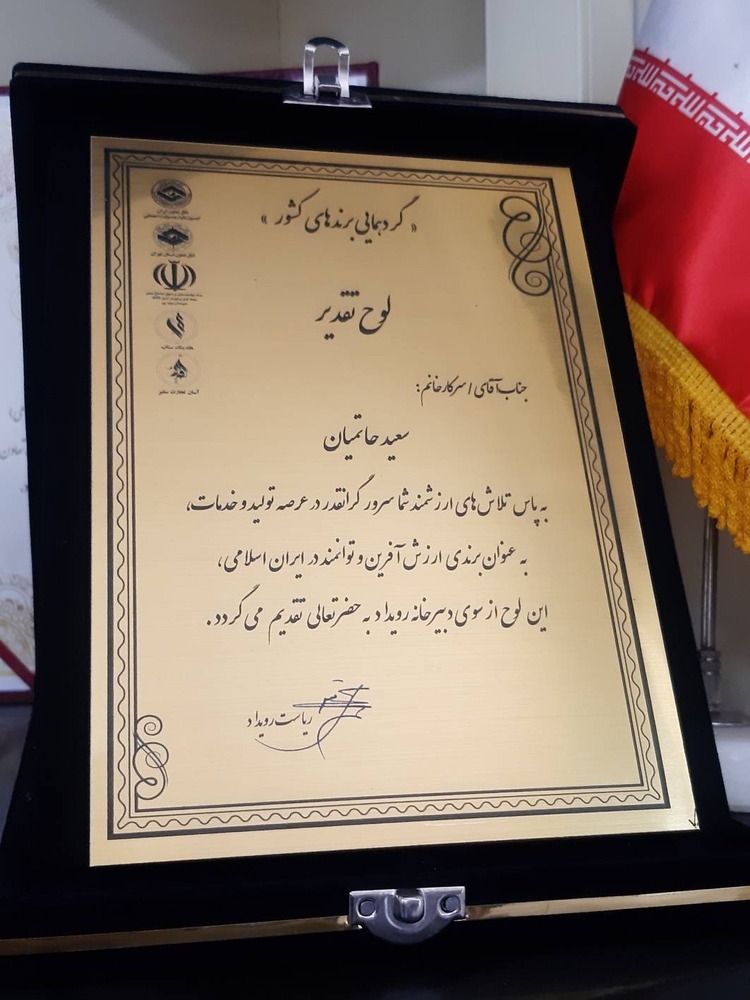 « گردهمایی برندهای کشور »
لوح تقدیر
جناب آقای / سرکار خانم:
سعید حاتمیان
به پاس تلاش های ارزشمند شما سرور گرانقدر در عرصه تولید و خدمات،
به عنوان برندی ارزش آفرین و توانمند در ایران اسلامی،
این لوح از سوی دبیرخانه رویداد به حضرتعالی تقدیم می گردد.
ریاست رویداد
اتاق تعاون ایران
اتاق تعاون استان تهران
آسان تجارت سفیر